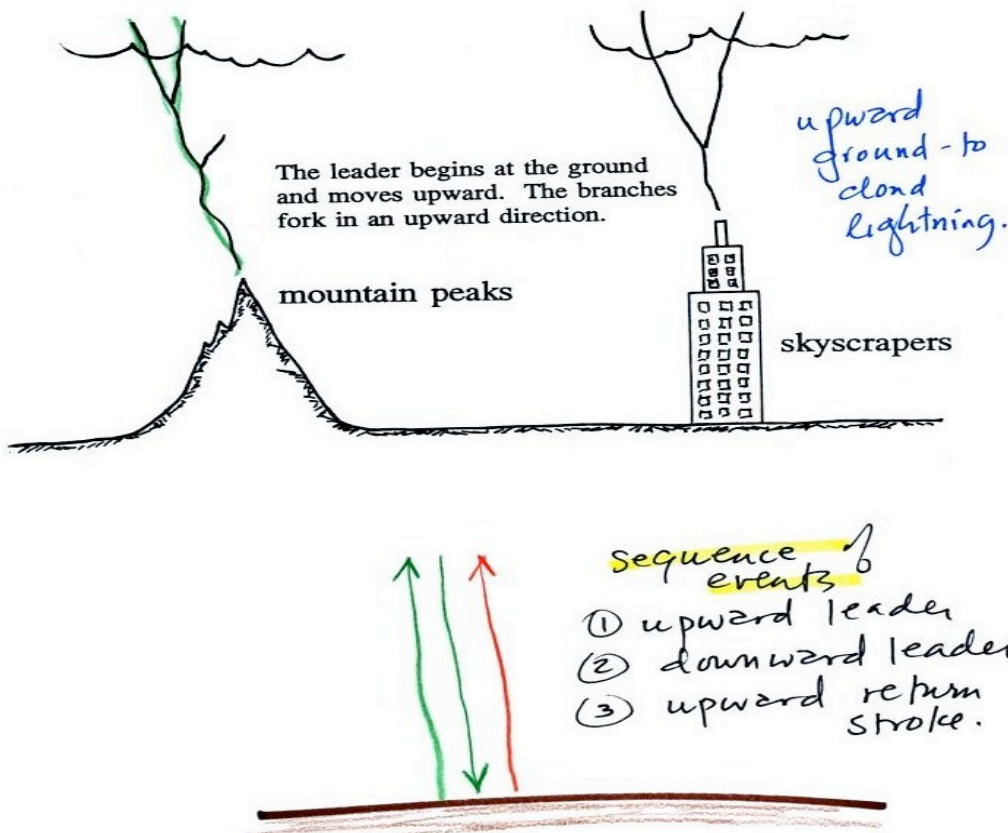 The leader begins at the ground
and moves upward. The branches
fork in an upward direction.
upward
ground-to
cloud
lightning.
mountain peaks
skyscrapers
sequence of
events
① upward leader
② downward leader
③ upward return
stroke.